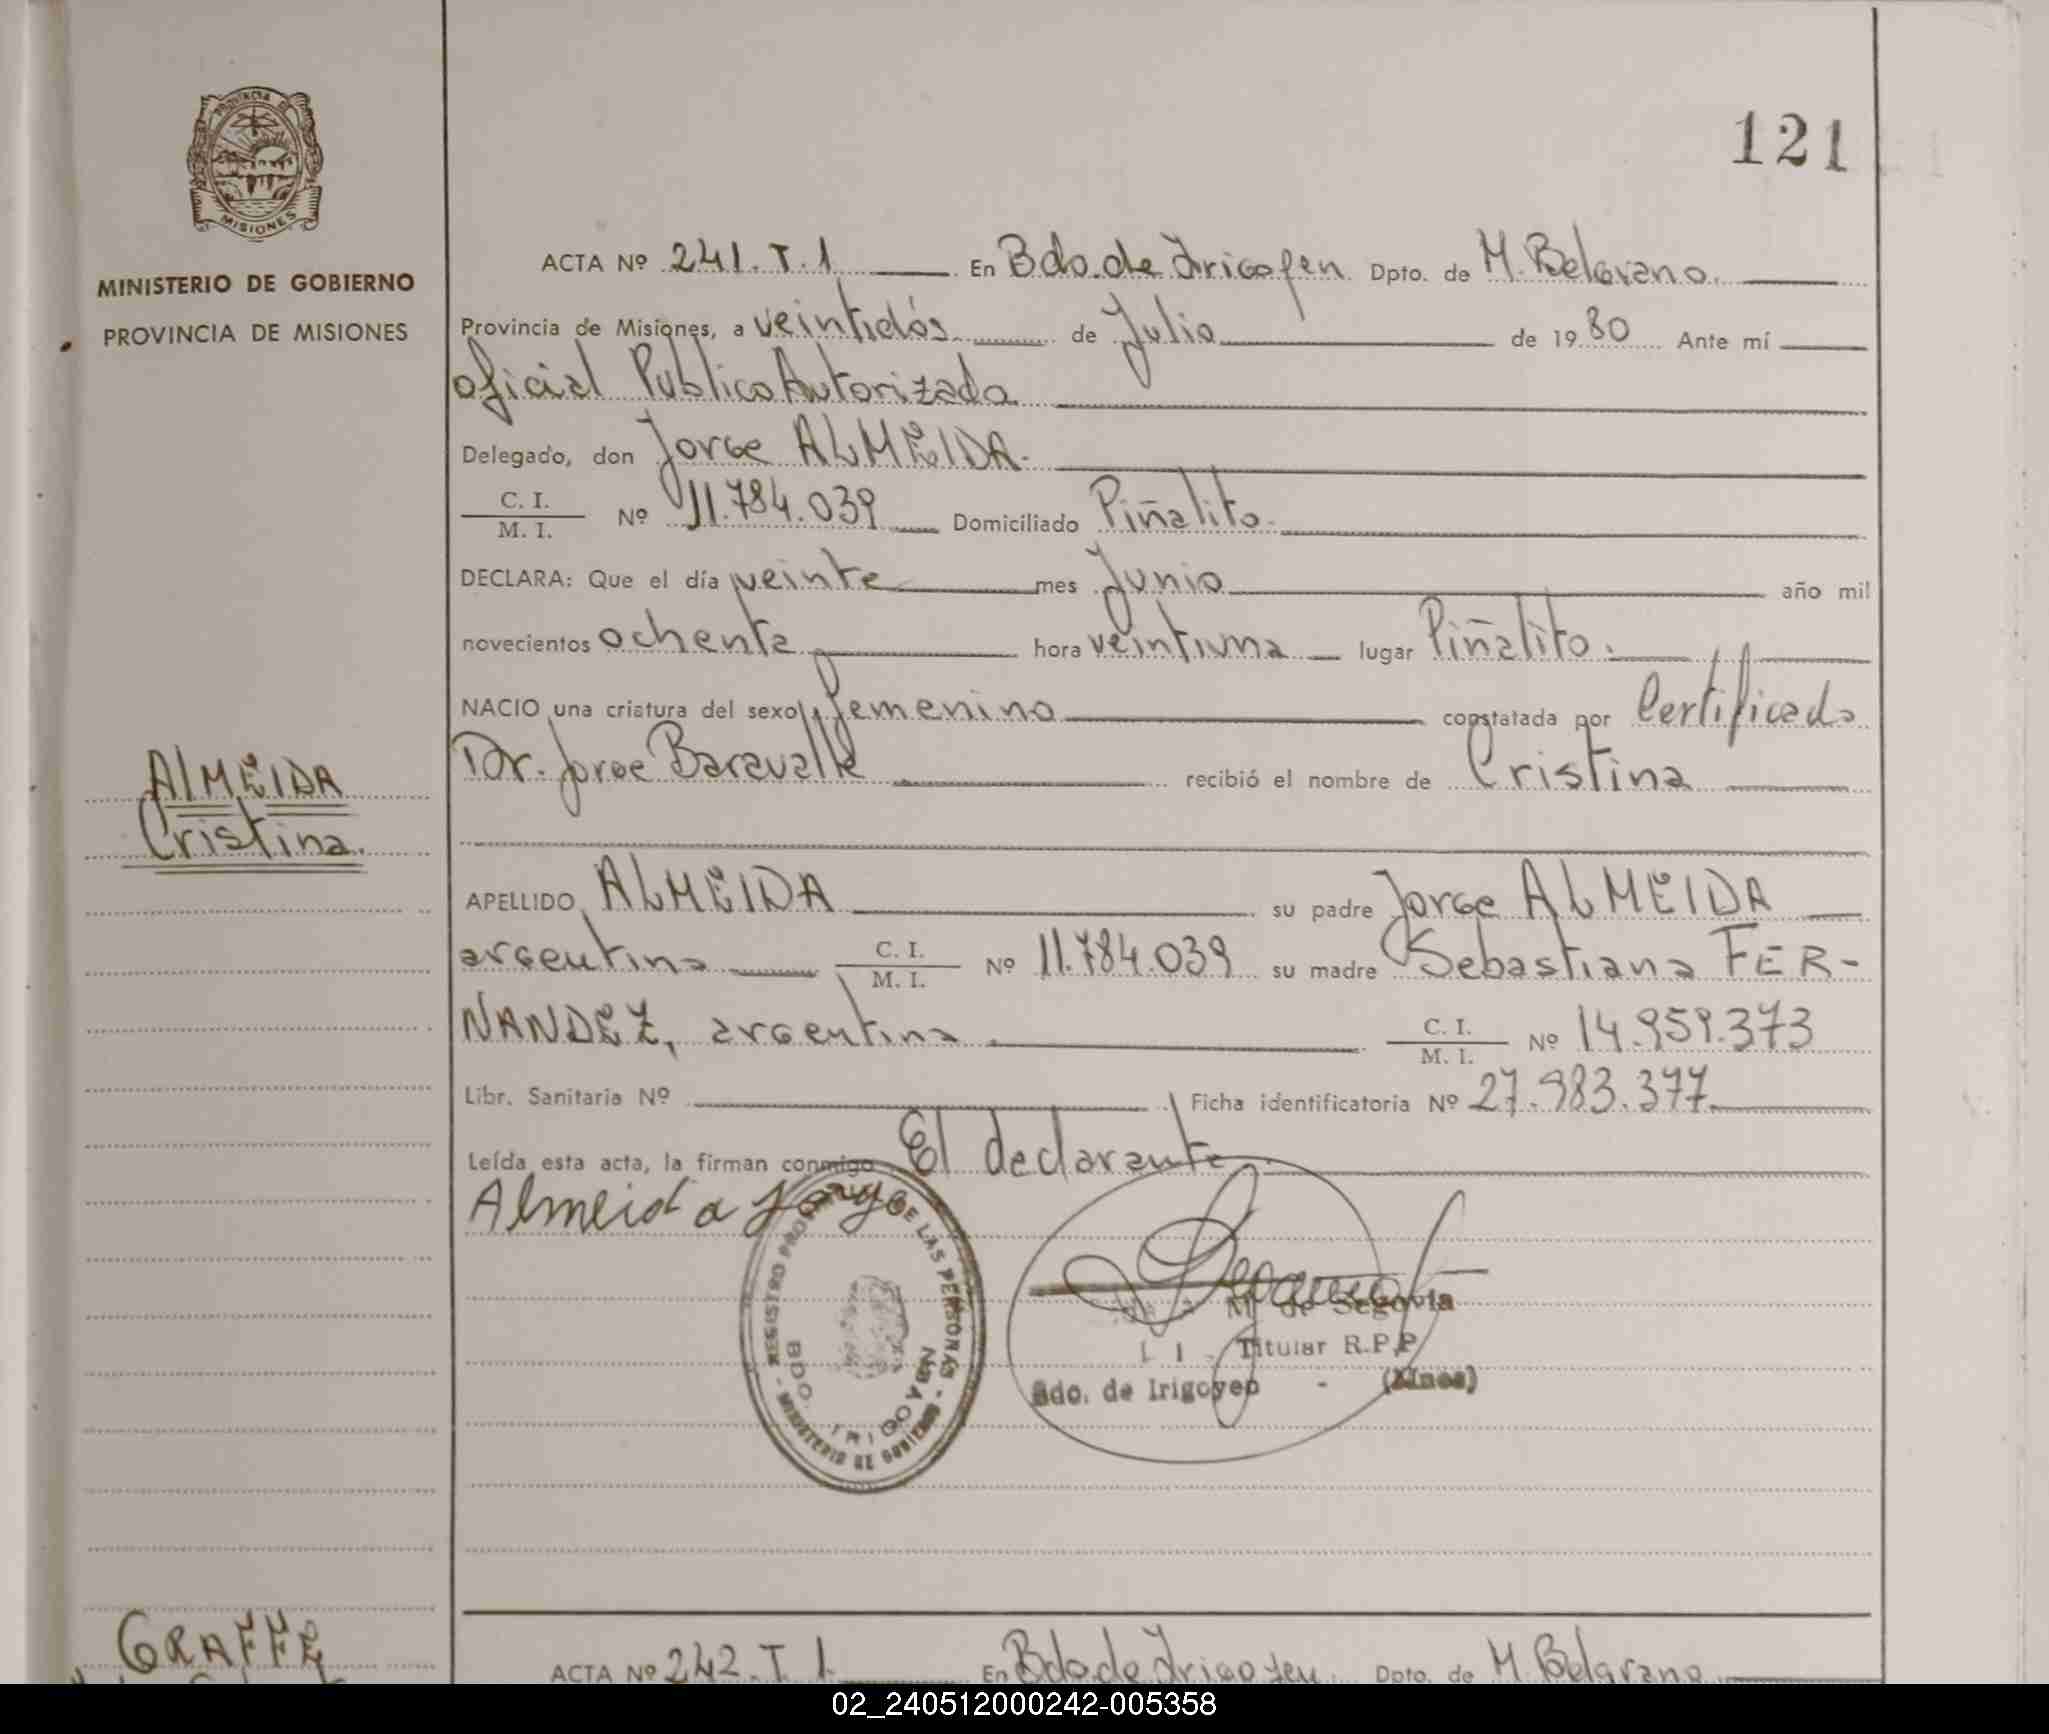 PROVINCIA DE
MISIONES
MINISTERIO DE GOBIERNO
PROVINCIA DE MISIONES
121
ACTA Nº 241. T. 1 En Bdo. de Irigoyen Dpto. de M. Belgrano.
Provincia de Misiones, a veintidós de Julio de 1980 Ante mí
oficial Publico Autorizado
Delegado, don Jorge ALMEIDA.
C. I.
M. I. Nº 11.784.039 Domiciliado Piñalito.
DECLARA: Que el día veinte mes Junio año mil
novecientos ochenta hora veintiuna lugar Piñalito.
NACIO una criatura del sexo femenino constatada por Certificado
Dr. Jorge Baravalle recibió el nombre de Cristina
ALMEIDA
Cristina.
APELLIDO ALMEIDA su padre Jorge ALMEIDA
argentino C. I.
M. I. Nº 11.784.039 su madre Sebastiana FER-
NANDEZ, argentina C. I.
M. I. Nº 14.959.373
Libr. Sanitaria Nº Ficha identificatoria Nº 27.983.377
Leída esta acta, la firman conmigo El declarante.
Almeida Jorge
REGISTRO DE LAS PERSONAS
MINISTERIO DE GOBIERNO
BDO. IRIGOYEN
M. de Segovia
Titular R.P.P
Bdo. de Irigoyen - (Mnes)
GRAFFE
ACTA Nº 242. T. 1. En Bdo de Irigoyen Dpto. de M. Belgrano
02_240512000242-005358